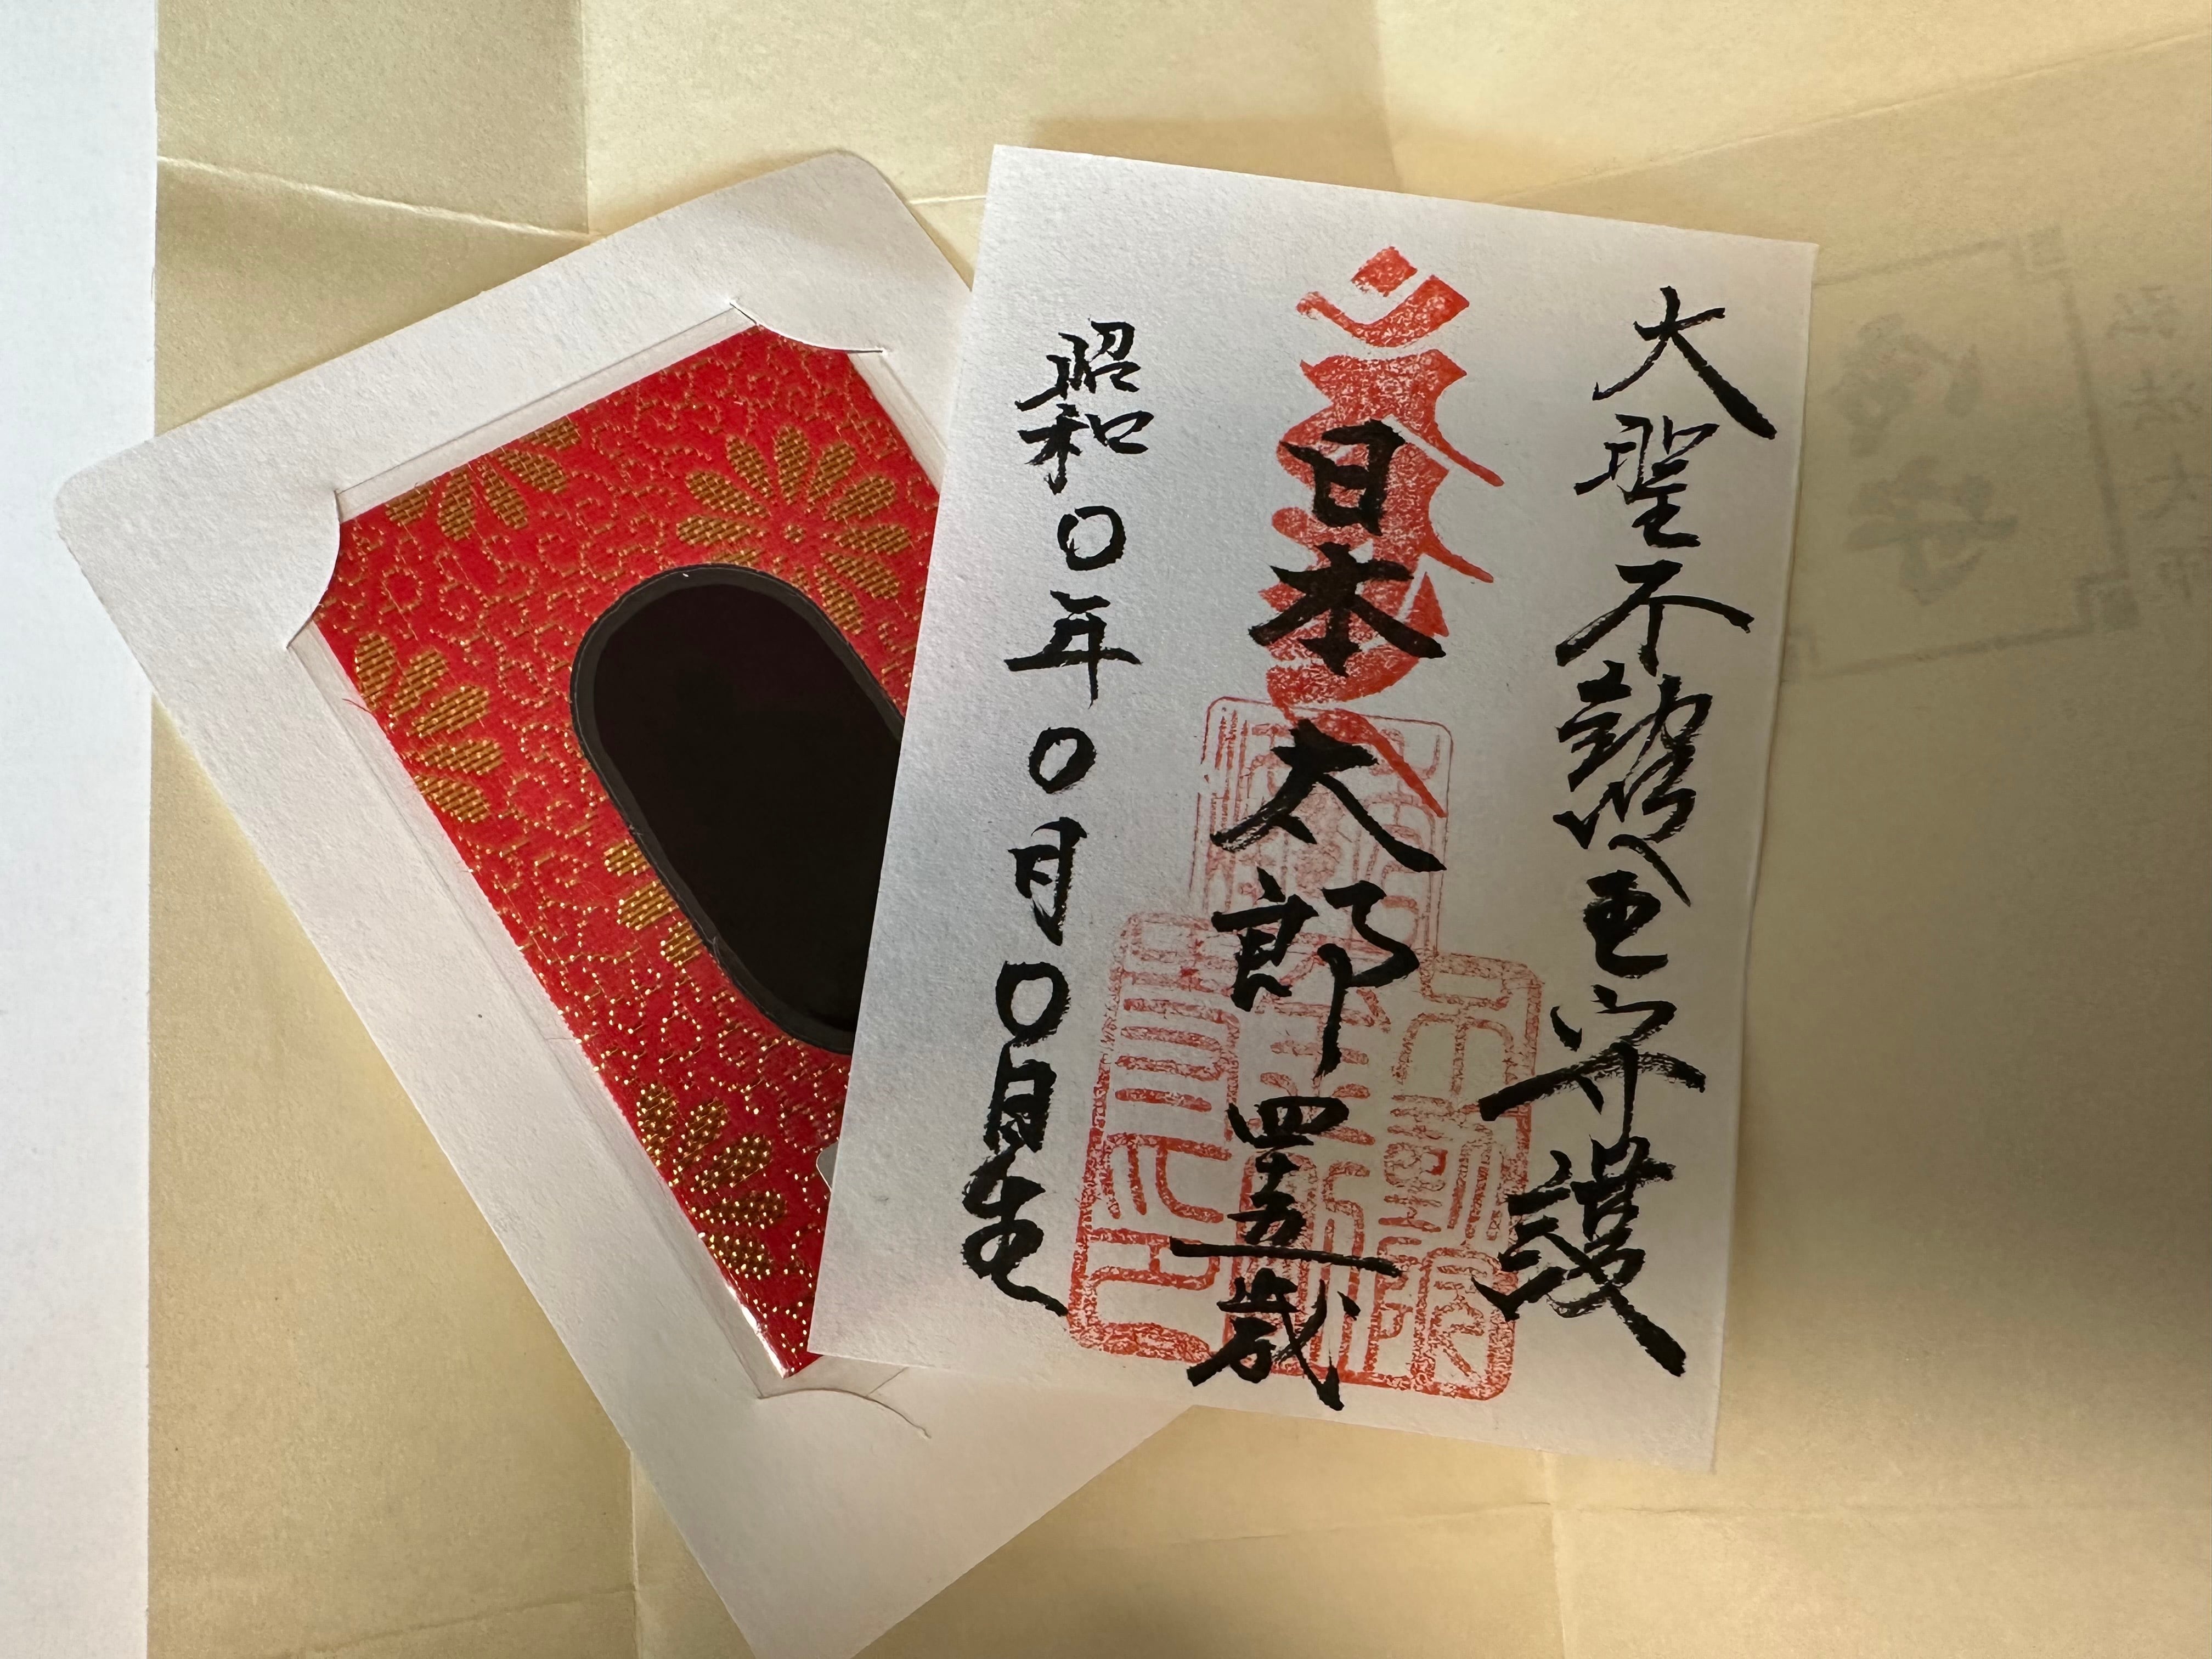 大聖不動明王守護
日本太郎四十五歳
昭和〇年〇月〇日生